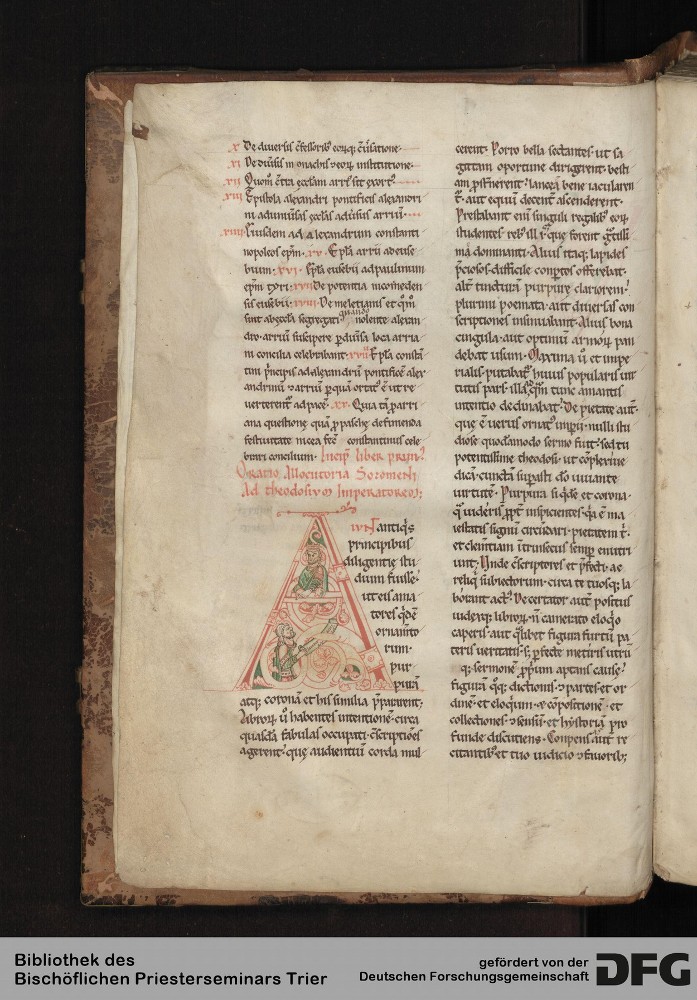 x De diuersis c̄fessorib; eorūq; c̄uersatione.
xi De diu̅sis monachis ⁊ eor̨ institutione.
xii Quom̄ c̄tra ęcclam arr͛ sit exort͛.
xiii Epistola alexandri pontificis alexandri
ni ad uniu̅sas ęcclas adu̅sus arriū.
xiiii Eiusdem ad Alexandrum constanti
nopoleos ep̄m. xv. Ep̄la arrii ad euse
bium. xvi. Ep̄la eusebii ad paulinum
ep̄m tyri. xvii De potentia nicomeden
sis eusebii. xviii De meletianis et qm̄
sunt ab ęccla segregati. quando nolente alexan
dro arrium suscipere p diu̅sa loca arria
ni concilia celebrabant. Ep̄la constā
tini principis ad alexandrū pontificē alex
andrinū ⁊ arriū p quā ortat͛ ē ut re
uerterent͛ ad pacē. xx. Quia tā p arri
ana questione quā p paschę defimenda
festiuitate nicea fec̄ constantinus cele
brari concilium. Incip̄ liber prim͛.
Oratio Allocutoria Sozomeni
Ad theodosivm Imperatorem;
AIUNT antiq̄s
principibus
diligentię stu
dium fuisse.
ut eis ama
tores qd̄e
ornam̄to
rum.
pur
purā
atq; coronā et his similia p̄pararent.
Librorū u̅ habentes intentionē circa
quasdā fabulas occupati c̄scriptiōes
agerent. quę audientiū corda mul
cerent. Porro bella sectantes ut sa
gittam oportune dirigerent. besti
am p̄sternerent. lanceā bene iacularen
t͛. aut equū decent͛ ascenderent.
Prestabant eni̅ singuli regalib; eor̨
studentes reb; illi q̄ forent gratissi
ma dominanti. Alius itaq; lapides
p̄ciosos difficile comptos offerebat.
alt͛ tincturā purpurę clariorem.
plurimi poemata. aut diuersas con
scriptiones insinuabant. Alius bona
cingula. aut optimū armor̨ pan
debat usum. Maxima u̅ et impe
rialis putabat͛ huius popularis uir
tutis pars. illa qm̄ tunc amantis
intentio declinabat. De pietate aut̄.
que ē uerus ornat͛ imp̄ii. nulli stu
diose quodāmodo sermo fuit. sed tu
potentissime theodosi. ut c̄plexiue
dicā. cunctā sup̄asti do̅ iuuante
uirtutē. Purpura siqd̄e et corona.
q̄ uideris ppt̄ inspicientes. qa ē ma
iestatis signū circūdari. pietatem u̅.
et clem̄tiam intrinsecus semp̄ enutri
unt. Unde c̄scriptores et p̄fecti. ac
reliq̄ subiectorum. circa te tuosq; la
borant act͛. De certator̨ aut̄ positus
iudexq; libror̨. n̄ camerato eloqo
caperis. aut qlibet figura furtū pa
teris ueritatis. s; p̄fecte metiris utrū
q;. sermonē p̄prium aptans causę.
figurā qq; dictionis ⁊ partes et or
dinē et eloquium. ⁊ c̄positionē. et
collectiones. ⁊ sensū. et hystoriā pro
funde discutiens. Conpensas aut̄ re
citantib; et tuo iudicio ⁊ fauorib;
Bibliothek des
Bischöflichen Priesterseminars Trier
gefördert von der
Deutschen Forschungsgemeinschaft
DFG